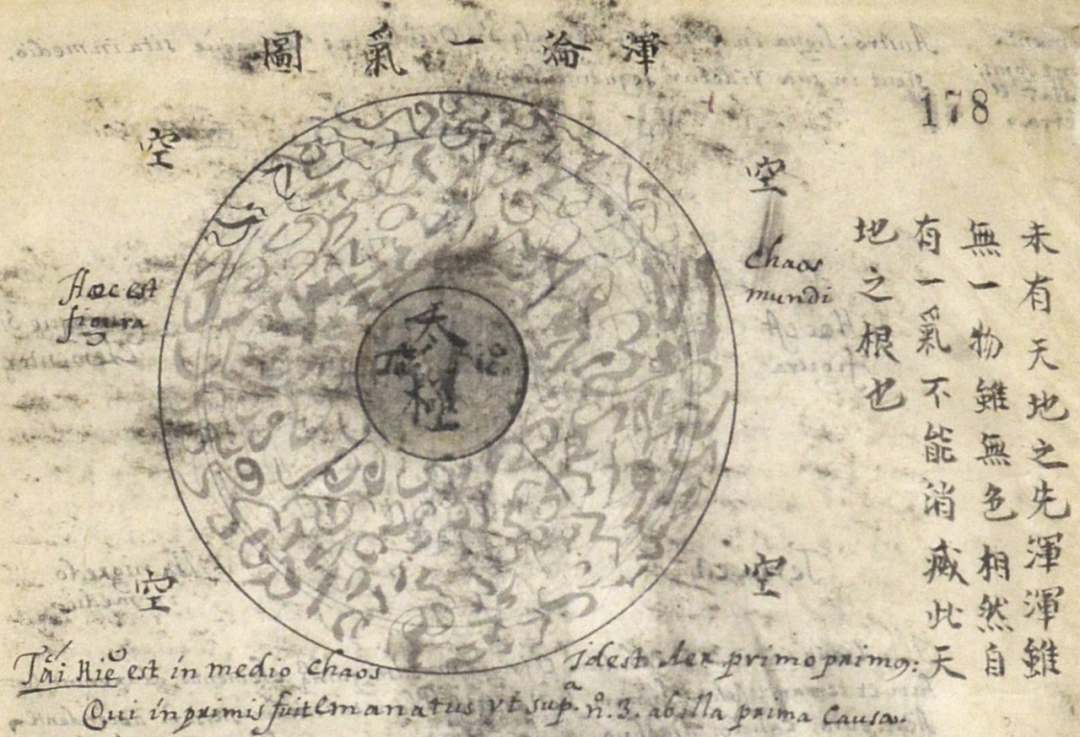 渾淪一氣圖
178
空
空
未有天地之先渾渾雖
無一物雖無色相然自
有一氣不能消滅此天
地之根也
Hæc est
figura
Chaos
mundi
太極
空
空
Tái Kiĕ est in medio Chaos idest Aer primo primo:
Qui in primis fuit Emanatus vt supª. nº. 3. ab illa prima Causa.